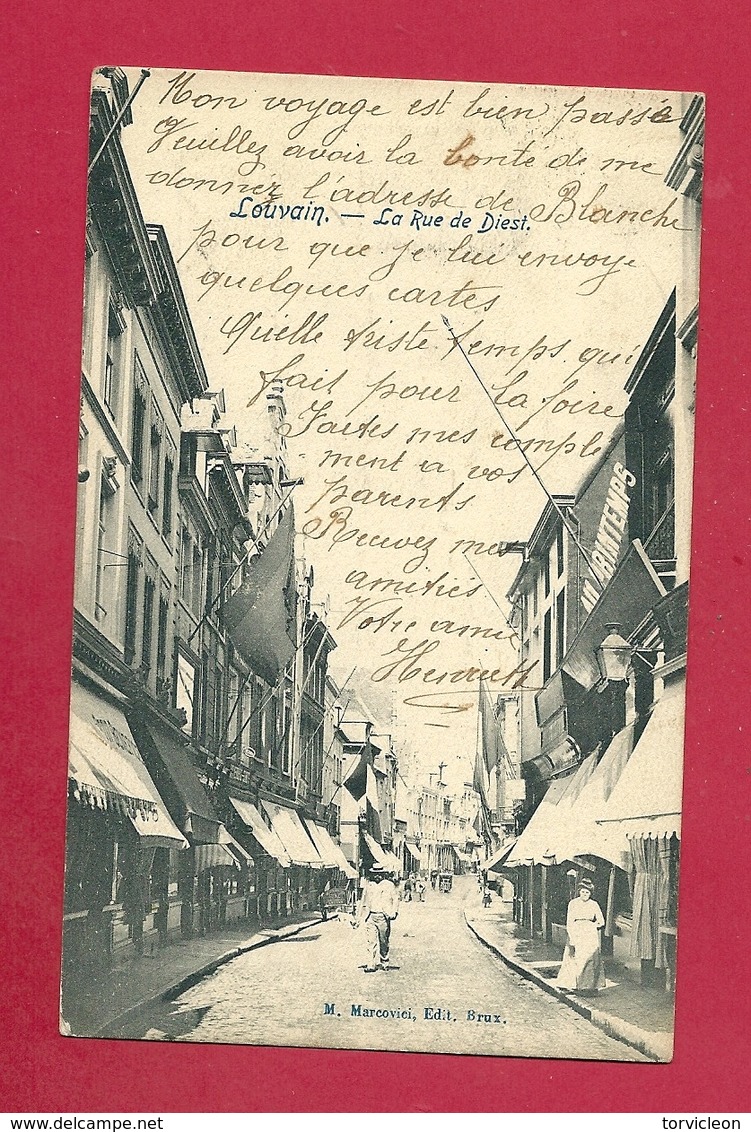 Mon voyage est bien passé
Veuillez avoir la bonté de me
donnez l'adresse de Blanche
Louvain. — La Rue de Diest.
pour que je lui envoye
quelques cartes
Quelle triste temps qui
fait pour la foire
Faites mes comple
ment a vos
parents
Recevez mes
amitiés
Votre amie
PRINTEMPS
M. Marcovici, Edit. Brux.
torvicleon